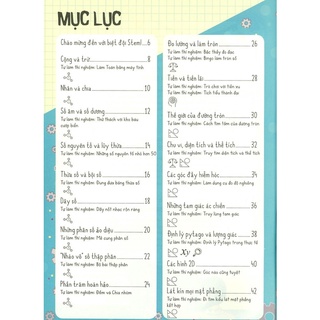 MỤC LỤC
Chào mừng đến với biệt đội Stem!...6
Cộng và trừ...8
Tự làm thí nghiệm: Làm Toán bằng máy tính
Nhân và chia...10
Số âm và số dương...12
Tự làm thí nghiệm: Thử thách với kho báu cướp biển
Số nguyên tố và lũy thừa...14
Tự làm thí nghiệm: Những số nguyên tố nhỏ hơn 50
Thừa số và bội số...16
Tự làm thí nghiệm: Đung đưa bảng thừa số
Dãy số...18
Tự làm thí nghiệm: Dãy nốt nhạc rộn ràng
Những phân số ảo diệu...20
Tự làm thí nghiệm: Mê cung phân số
"Nhào vô" số thập phân...22
Tự làm thí nghiệm: Bộ bài thập phân
Phần trăm hoàn hảo...24
Tự làm thí nghiệm: Đếm và Chia nhóm
Đo lường và làm tròn...26
Tự làm thí nghiệm: Bậc thầy đo đạc
Tự làm thí nghiệm: Bingo làm tròn số
Tiền và tiền lãi...28
Tự làm thí nghiệm: Trò chơi với tiền xu
Tự làm thí nghiệm: Tích tiểu thành đại
Thế giới của đường tròn...30
Tự làm thí nghiệm: Cách tìm tâm của đường tròn
Chu vi, diện tích và thể tích...32
Tự làm thí nghiệm: Truy tìm diện tích và thể tích
Các góc đầy hiếm hóc...34
Tự làm thí nghiệm: Làm dụng cụ đo độ nghiêng
Những tam giác ác chiến...36
Tự làm thí nghiệm: Truy lùng tam giác
Định lý pytago và lượng giác...38
Tự làm thí nghiệm: Định lý Pytago trong thực tế
Xy
Các hình 2D...40
Tự làm thí nghiệm: Góc nào cũng tuyệt
Lát kín mọi mặt phẳng...42
Tự làm thí nghiệm: Đi tìm kiểu lát mặt phẳng kết hợp